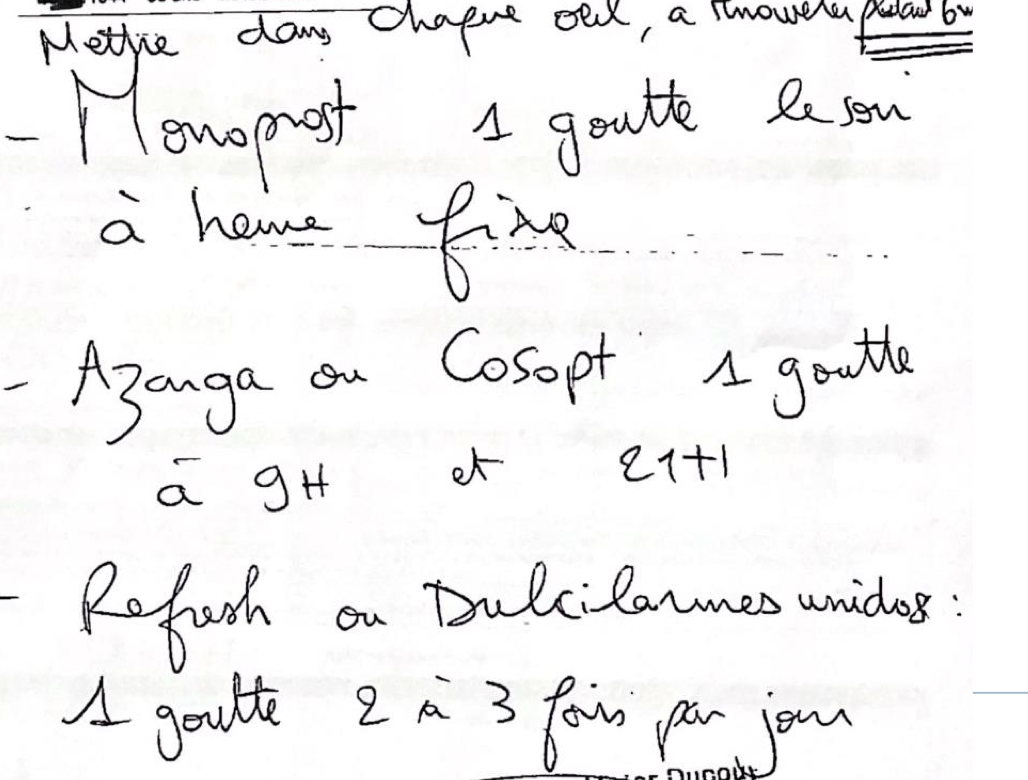 Mettre dans chaque oeil, à renouveler pendant 6m
- Monoprost 1 goutte le soir
à heure fixe
- Azarga ou Cosopt 1 goutte
à 9H et 21H
- Refresh ou Dulcilarmes unidos :
1 goutte 2 à 3 fois par jour